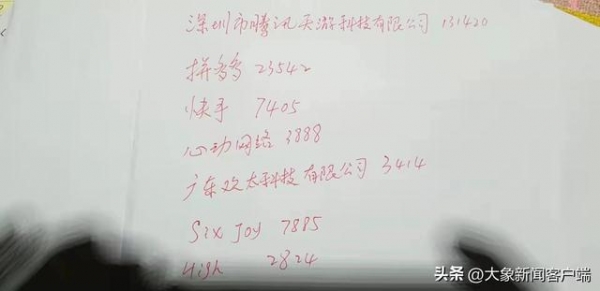 深圳市腾讯天游科技有限公司 131420
拼多多 23542
快手 7405
心动网络 3888
广东欢太科技有限公司 3414
Six Joy 7885
High 2824
头条 @大象新闻客户端